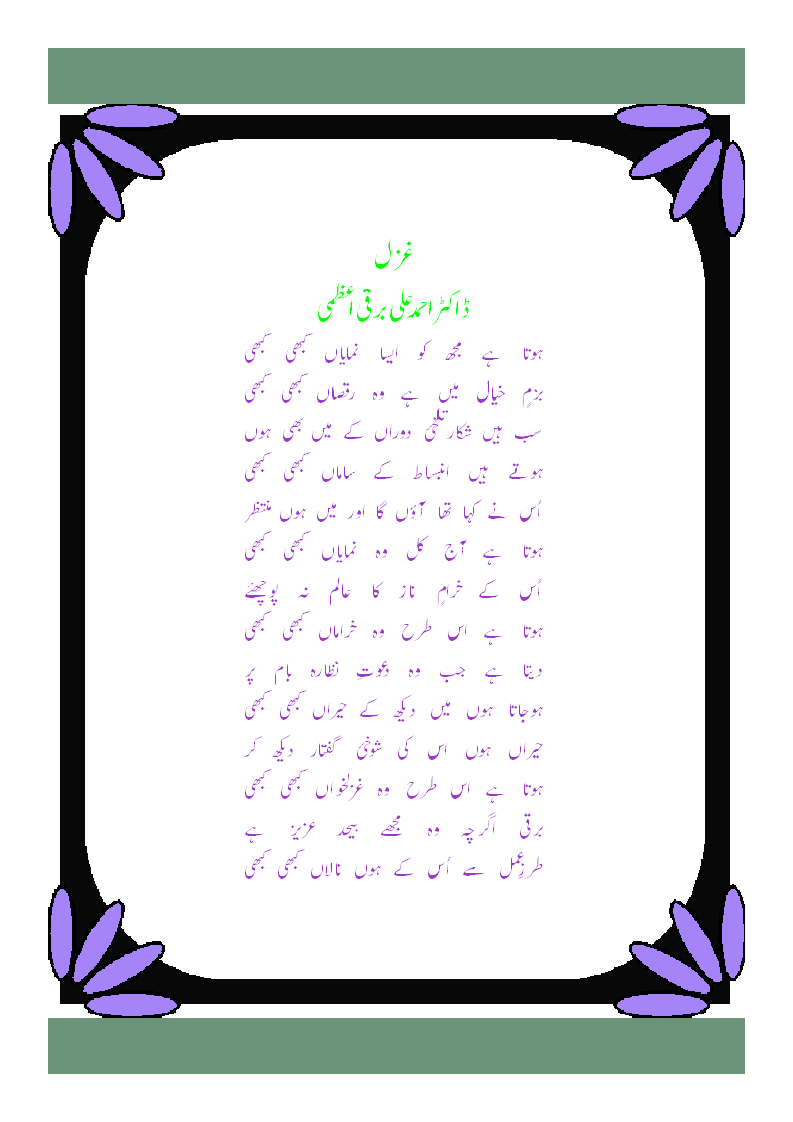 غزل
ڈاکٹر احمد علی برقی اعظمی
ہوتا ہے مجھ کو ایسا نمایاں کبھی کبھی
بزمِ خیال میں ہے وہ رقصاں کبھی کبھی
سب ہیں شکار تلخیٔ دوراں کے میں بھی ہوں
ہوتے ہیں انبساط کے ساماں کبھی کبھی
اُس نے کہا تھا آؤں گا اور میں ہوں منتظر
ہوتا ہے آج کل وہ نمایاں کبھی کبھی
اُس کے خرامِ ناز کا عالم نہ پوچھئے
ہوتا ہے اس طرح وہ خراماں کبھی کبھی
دیتا ہے جب وہ دعوتِ نظارہ بام پر
ہوجاتا ہوں میں دیکھ کے حیراں کبھی کبھی
حیراں ہوں اس کی شوخیٔ گفتار دیکھ کر
ہوتا ہے اس طرح وہ غزلخواں کبھی کبھی
برقی اگرچہ وہ مجھے بیحد عزیز ہے
طرزِ عمل سے اُس کے ہوں نالاں کبھی کبھی